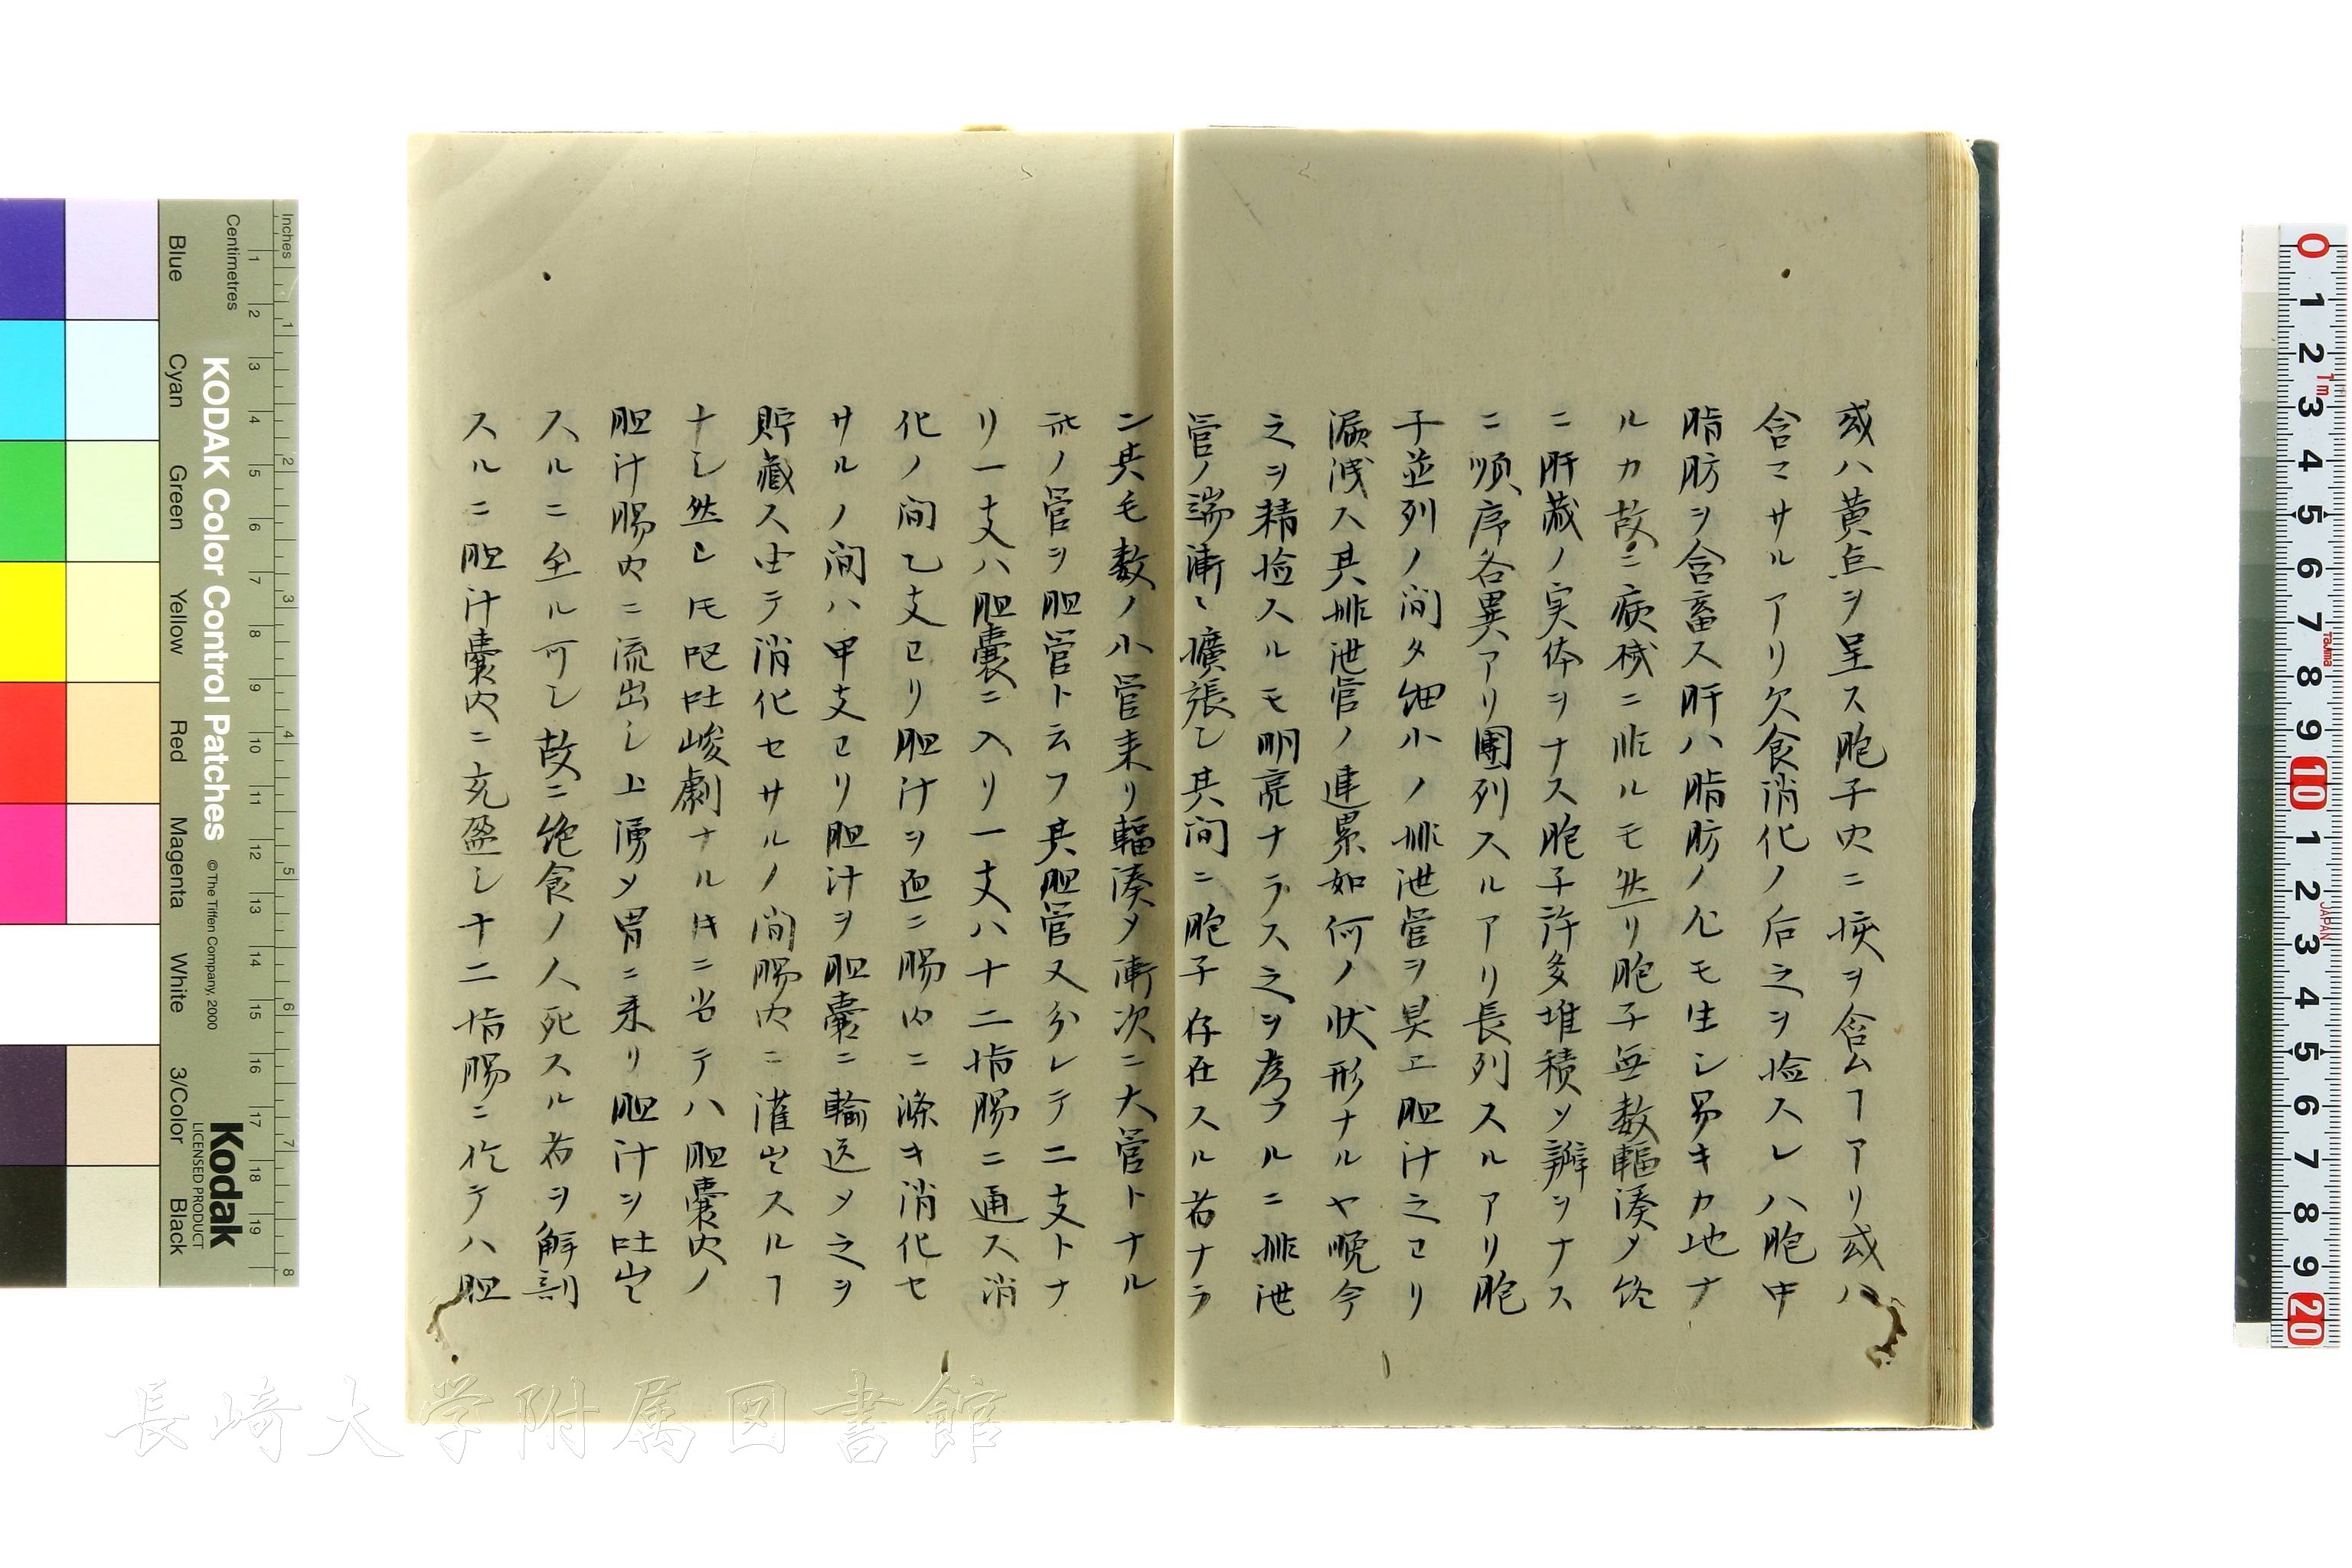 或ハ黄点ヲ呈ス胞子内ニ核ヲ含ムヿアリ或ハ
含マサルアリ欠食消化ノ后之ヲ検スレハ胞中
脂肪ヲ含畜ス肝ハ脂肪ノ尤モ生シ易キカ地ナ
ルカ故ニ病機ニ非ルモ然リ胞子無数輻湊メ終
ニ肝蔵ノ実体ヲナス胞子許多堆積ソ瓣ヲナス
ニ順序各異アリ團列スルアリ長列スルアリ胞
子並列ノ間タ細小ノ排泄管ヲ具エ胆汁之ヨリ
漏洩ス其排泄管ノ連累如何ノ状形ナルヤ晩今
之ヲ精検スルモ明亮ナラス之ヲ考フルニ排泄
管ノ端漸々擴張シ其間ニ胞子存在スル者ナラ
ン其毛数ノ小管来リ輻湊メ漸次ニ大管トナル
此ノ管ヲ胆管ト云フ其胆管又分レテ二支トナ
リ一支ハ胆囊ニ入リ一支ハ十二指腸ニ通ス消
化ノ間乙支ヨリ胆汁ヲ直ニ腸内ニ滌キ消化セ
サルノ間ハ甲支ヨリ胆汁ヲ胆囊ニ輸送メ之ヲ
貯蔵ス由テ消化セサルノ間腸内ニ灌出スルヿ
ナシ然レ𪜈呕吐峻劇ナルキニ当テハ胆囊内ノ
胆汁腸内ニ流出シ上湧メ胃ニ来リ胆汁ヲ吐出
スルニ至ル可シ故ニ絶食ノ人死スル者ヲ解剖
スルニ胆汁囊内ニ充盈シ十二指腸ニ於テハ胆
KODAK Color Control Patches
© The Tiffen Company, 2000
Kodak
LICENSED PRODUCT
Inches
Centimetres
Blue Cyan Green Yellow Red Magenta White 3/Color Black
長崎大学附属図書館